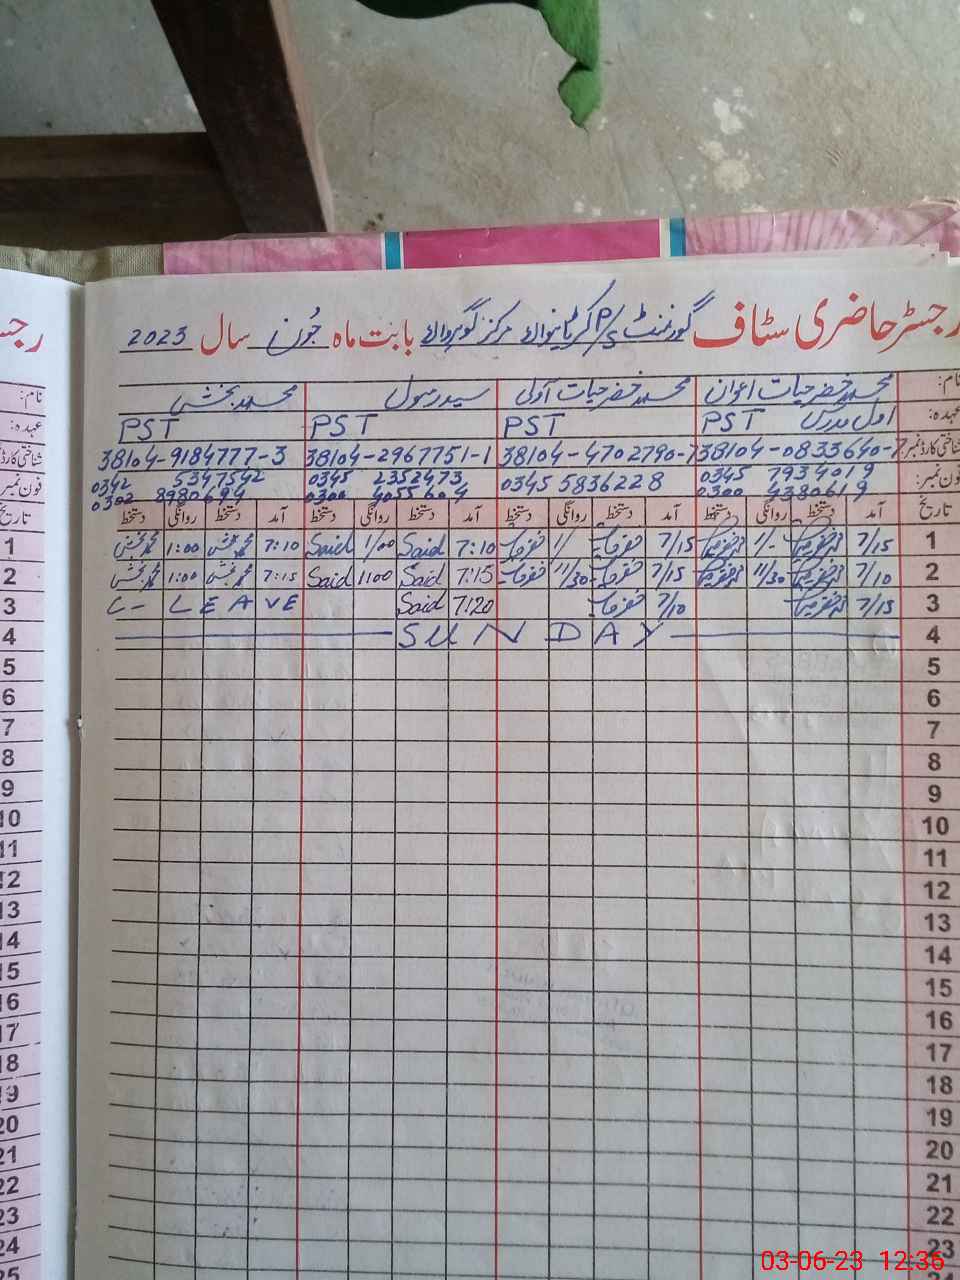 رجسٹر حاضری سٹاف گورنمنٹ P/S مرکز بابت ماہ جون سال 2023
نام: محمد خضر حیات اعوان محمد خضر حیات سید رسول محمد بخش
عہدہ: اول مدرس PST PST PST PST
شناختی کارڈ نمبر: 38104-0833640-7 38104-4702790-7 38104-2967751-1 38104-9184777-3
فون نمبر: 0345 7934019 0345 5836228 0345 2352473 0342 5347542
0300 4380619 0300 4055604 0302 8980694
تاریخ آمد دستخط روانگی دستخط آمد دستخط روانگی دستخط آمد دستخط روانگی دستخط آمد دستخط روانگی دستخط
1 7/15 1/- 7/15 1/ 7:10 Said 1/00 Said 7:10 محمد بخش 1:00 محمد بخش
2 7/10 11/30 7/15 11/30 7:15 Said 1100 Said 7:15 محمد بخش 1:00 محمد بخش
3 7/15 7/10 7:20 Said C- LEAVE
4 SUNDAY
5
6
7
8
9
10
11
12
13
14
15
16
17
18
19
20
21
22
23
رجس
نام:
عہدہ:
شناختی کارڈ
فون نمبر
تاریخ
1
2
3
4
5
6
7
8
9
10
11
12
13
14
15
16
17
18
19
20
21
22
23
24
25
03-06-23 12:36